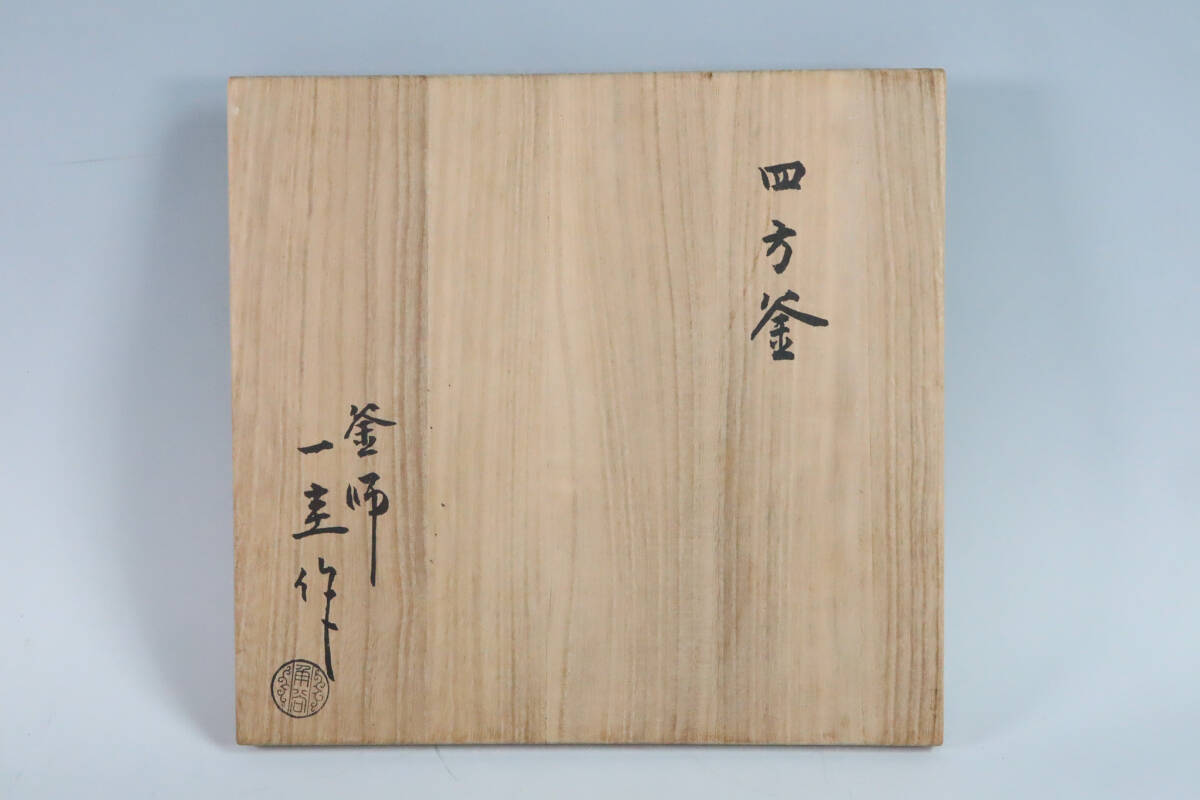 四方釜
釜師
一圭作
角谷